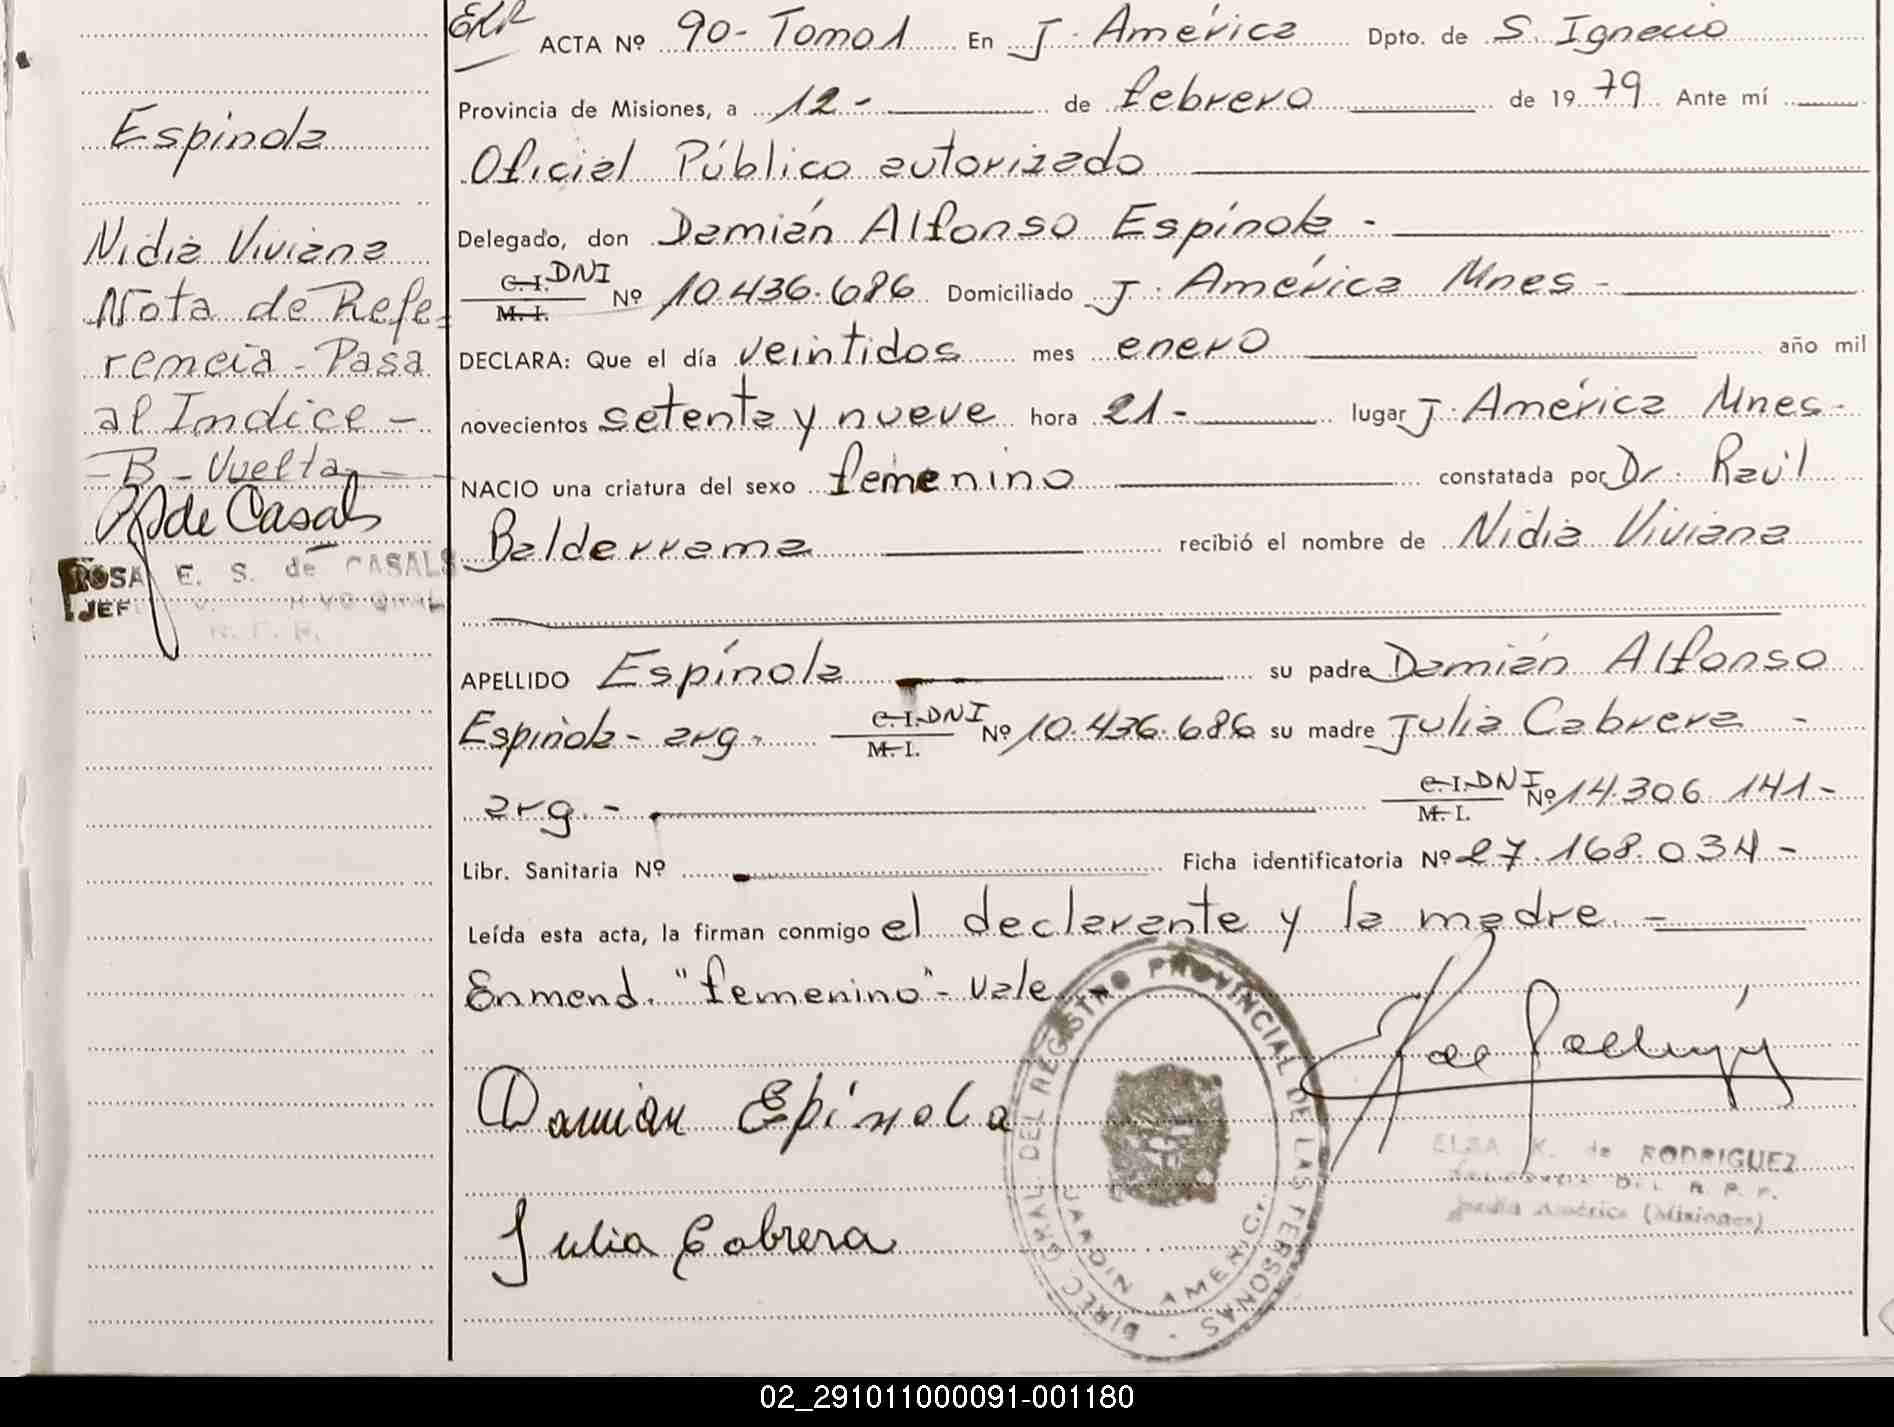 Espínola
Nidia Viviana
Nota de Refe-
rencia - Pasa
al Indice -
- B - Vuelta -
de Casals
ROSA E. S. de CASALS
JEF
ACTA Nº 90 - Tomo 1 En J. América Dpto. de S. Ignacio
Provincia de Misiones, a 12 - de febrero de 1979 Ante mí
Oficial Público autorizado
Delegado, don Damián Alfonso Espínola -
C. I. DNI
M. I. Nº 10.436.686 Domiciliado J. América Mnes -
DECLARA: Que el día veintidos mes enero año mil
novecientos setenta y nueve hora 21 - lugar J. América Mnes -
NACIO una criatura del sexo femenino constatada por Dr. Raúl
Balderrama recibió el nombre de Nidia Viviana
APELLIDO Espínola su padre Damián Alfonso
Espínola - arg - C. I. DNI M. I. Nº 10.436.686 su madre Julia Cabrera -
arg. - C. I. DNI M. I. Nº 14.306.141 -
Libr. Sanitaria Nº Ficha identificatoria Nº 27.168.034 -
Leída esta acta, la firman conmigo el declarante y la madre. -
Enmend. "femenino" - Vale -
Damián Espínola
Julia Cabrera
DIREC. GRAL. DEL REGISTRO PROVINCIAL DE LAS PERSONAS
JARDIN AMERICA
ELSA K. de RODRIGUEZ
DEL R. P. P.
Jardín América (Misiones)
02_291011000091-001180